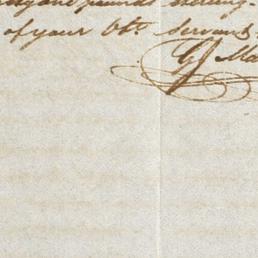 pounds sterling.
of your Obt. servant
GJ Ma